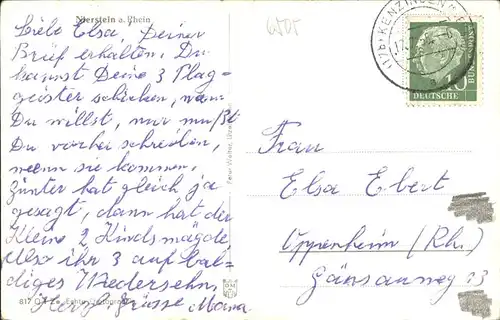 Nierstein a. Rhein
Liebe Elsa, Deinen
Brief erhalten. Du
kannst Deine 3 Plag-
geister schicken, wann
Du willst, nur mußt
Du vorher schreiben,
wenn sie kommen.
Günter hat gleich ja
gesagt, dann hat der
Kleine 2 Kindsmägde
Also ihr 3 auf bal-
diges Wiedersehn.
Herzl. Grüsse Mama
(17b) KENZINGEN
17.
a
10
DEUTSCHE
BUNDESPOST
Frau
Elsa Ebert
Oppenheim (Rh.)
Gänsauweg 13
Peter Walter,